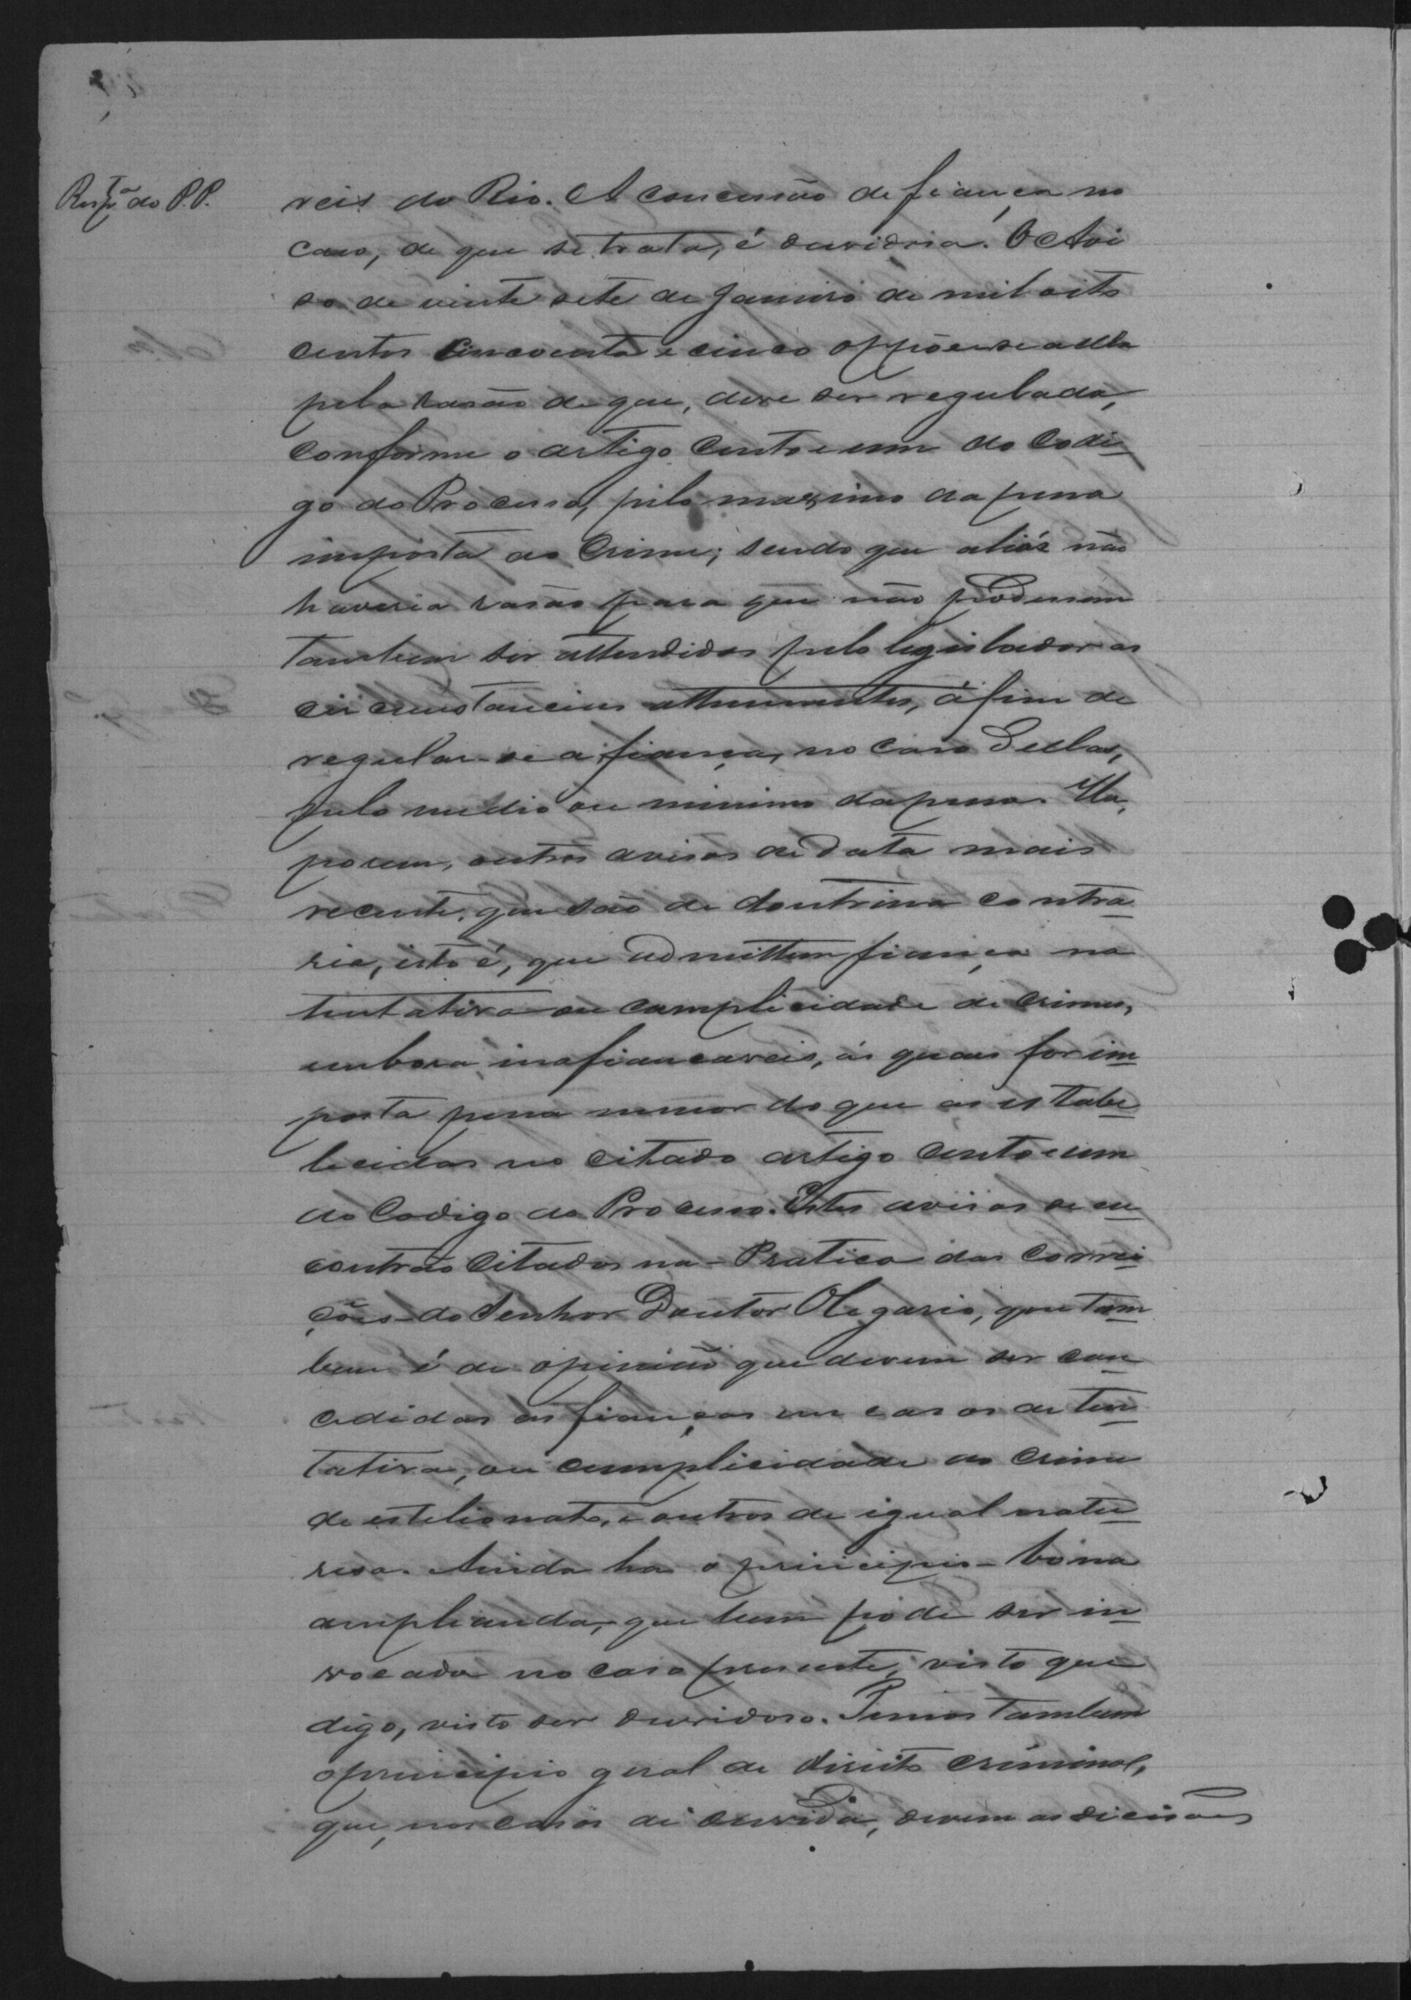 Resp.ta do P. P.
reis do Rio. A concessão de fiança no
caso, de que se trata, é duvidosa. O Avi
so de vinte sete de Janeiro de mil oito
centos cincoenta e cinco oppõe-se a ella
pela rasão de que, deve ser regulada,
conforme o artigo cento e um do Codi-
go do Processo, pelo maximo da pena
imposta ao crime; sendo que aliás não
haveria rasão para que não podessem
tambem ser attendidas pelo legislador as
circunstancias attenuantes, á fim de
regular-se a fiança, no caso dellas,
pelo medio ou minimo da pena. Ha,
porem, outros avisos de data mais
recente, que são de doutrina contra-
ria, isto é, que admittem fiança na
tentativa ou complicidade de crimes,
embora inafiancaveis, ás quaes for im-
posta pena menor do que as estabe-
lecidas no citado artigo cento e um
do Codigo do Processo. Estes avisos se en-
contrão citados na - Pratica das Correi-
ções - do Senhor Doutor Olegario, que tam-
bem é de opinião que devem ser con-
cedidas as fianças em casos de ten-
tativa, ou cumplicidade do crime
de estelionato, e outros de igual natu-
resa. Ainda ha o principio - bona
amplianda, que bem póde ser in-
vocado no caso presente, visto que
digo, visto ser duvidoso. Temos tambem
o principio geral de direito criminal,
que, nos casos de duvida, devem as decisões